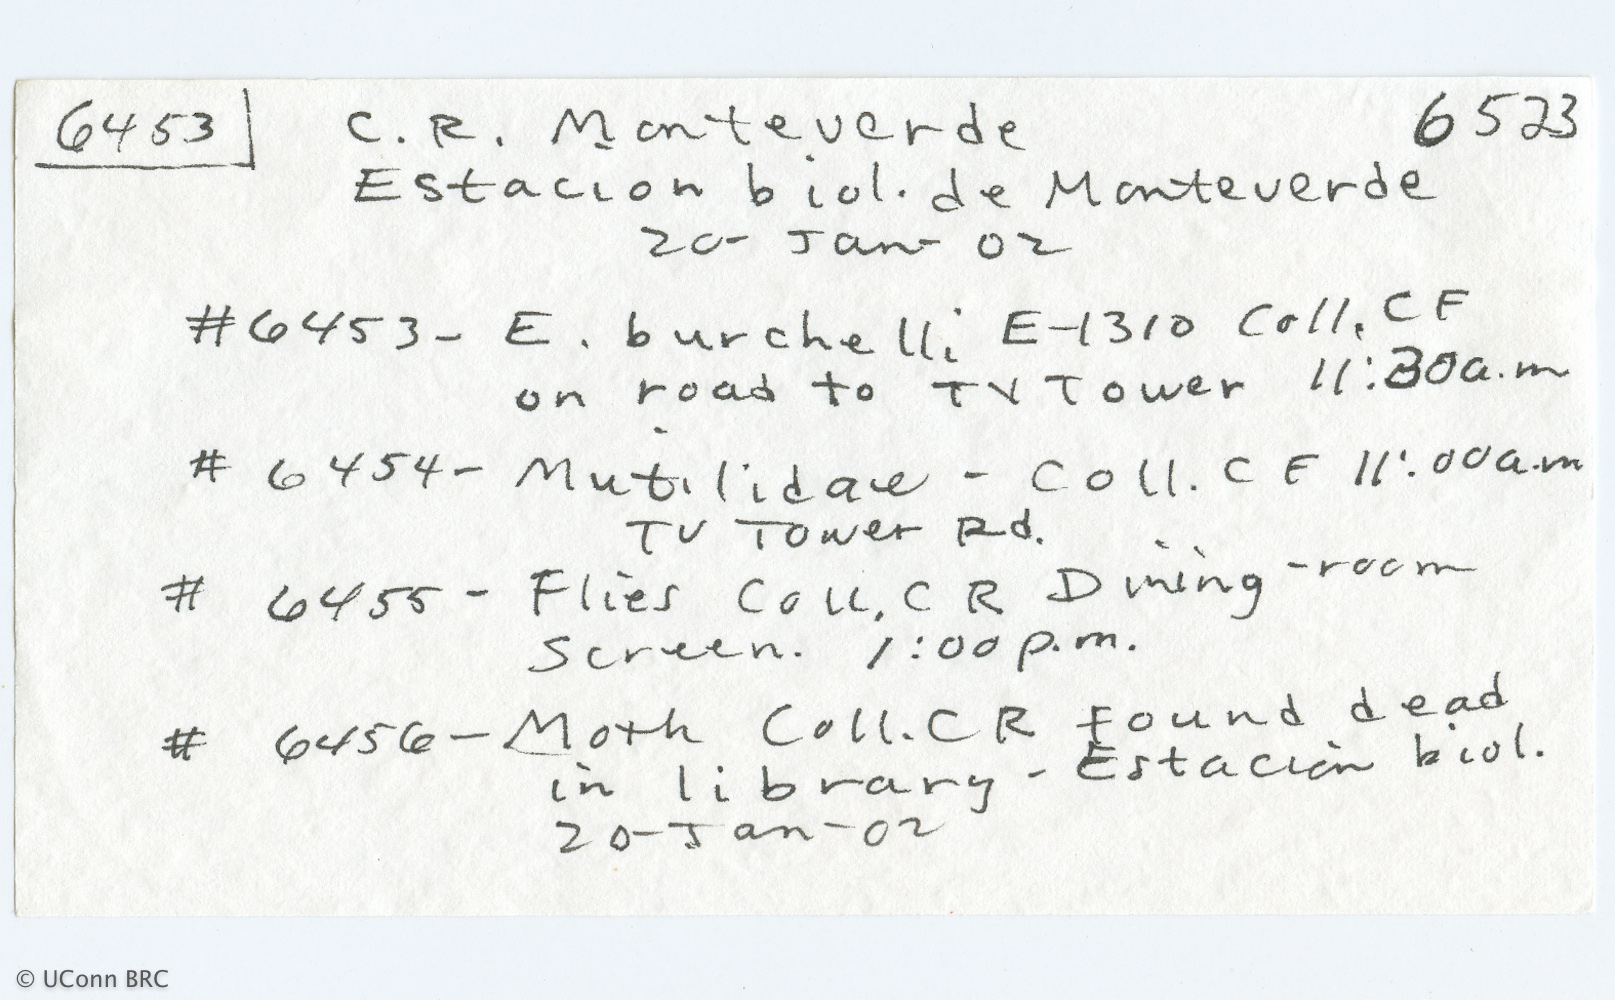 6453 C.R. Monteverde 6523
Estacion biol. de Monteverde
20-Jan-02
#6453- E. burchelli E-1310 Coll. CF
on road to TV Tower 11:30a.m
# 6454- Mutilidae - Coll. CF 11:00a.m
TV Tower Rd.
# 6455- Flies Coll. CR Dining-room
Screen. 1:00p.m.
# 6456- Moth Coll. CR found dead
in library- Estación biol.
20-Jan-02
© UConn BRC